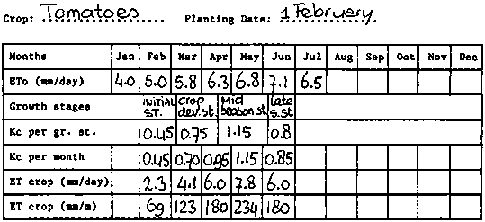 Crop: Tomatoes Planting Date: 1 February
Months Jan Feb Mar Apr May Jun Jul Aug Sep Oct Nov Dec
ETo (mm/day) 4.0 5.0 5.8 6.3 6.8 7.1 6.5
Growth stages initial st. crop dev.st. Mid season st. late s.st
Kc per gr. st. 0.45 0.75 1.15 0.8
Kc per month 0.45 0.70 0.95 1.15 0.85
ET crop (mm/day) 2.3 4.1 6.0 7.8 6.0
ET crop (mm/m) 69 123 180 234 180